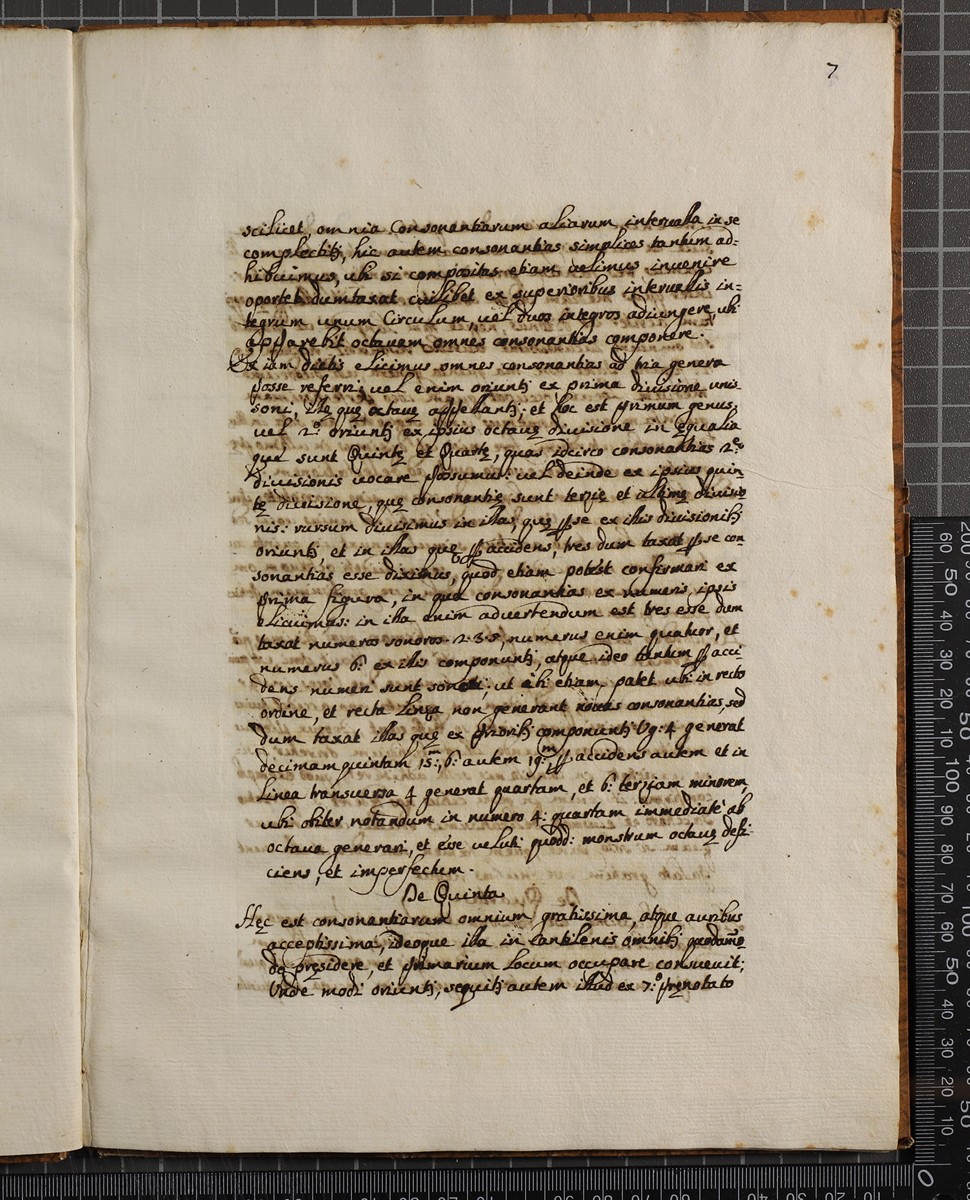 7
scilicet, omnia Consonantiarum aliarum interualla in se
complectitʒ, hic autem consonantias simplices tantùm ad=
hibuimus, ubi si compositas etiam uelimus inuenire
oportet dumtaxat cuilibet ex superioribus interuallis in=
tegrum unum Circulum, uel duos integros adiungere, ubi
apparebit octauam omnes consonantias componere.
Ex iam dictis elicimus omnes consonantias ad tria genera
posse referri; uel enim oriuntʒ ex prima diuisione uni
soni, illę quę octauę appellantʒ; et hoc est primum genus,
uel 2.º oriuntʒ ex ipsius octauę diuisione in ęqualia
quę sunt Quintę et Quartę, quas idcirco consonantias 2.ę
diuisionis uocare possumus: uel deinde ex ipsius quin
tę diuisione, quę consonantię sunt terzię et ultimę diuisio
nis: rursum diuisimus in illas, quę ꝑ se ex illis diuisionibʒ
oriuntʒ, et in illas quę ꝑ accidens, tres dum taxat ꝑ se con
sonantias esse diximus, quod etiam potest confirmari ex
prima figura, in qua consonantias ex numeris ipsis
elicuimus: in illa enim aduertendum est tres esse dum
taxat numeros sonoros 2: 3: 5, numerus enim quatuor, et
numerus 6: ex illis componuntʒ, atque ideo tantum ꝑ acci
dens numeri sunt sonori; ut ibi etiam patet ubi in recto
ordine, et recta Linea non generant nouas consonantias, sed
dum taxat illas quę ex prioribʒ componuntʒ Vg: 4 generat
decimam quintam 15:ᵐ, 6: autem 19:ᵐ ꝑ accidens autem et in
Linea transuersa 4 generat quartam, et 6: terziam minorem,
ubi obiter notandum in numero 4: quartam immediatè ab
octaua generari, et esse ueluti quodd: monstrum octauę defi=
ciens, et imperfectum.
De Quinta
Hęc est consonantiarum omnium gratissima, atque auribus
acceptissima, ideoque illa in Cantilenis omnibʒ quodam̃o
do pręsidere, et primarium Locum occupare consueuit;
Vnde modi oriuntʒ, sequitʒ autem illud ex 7:º pręnotato